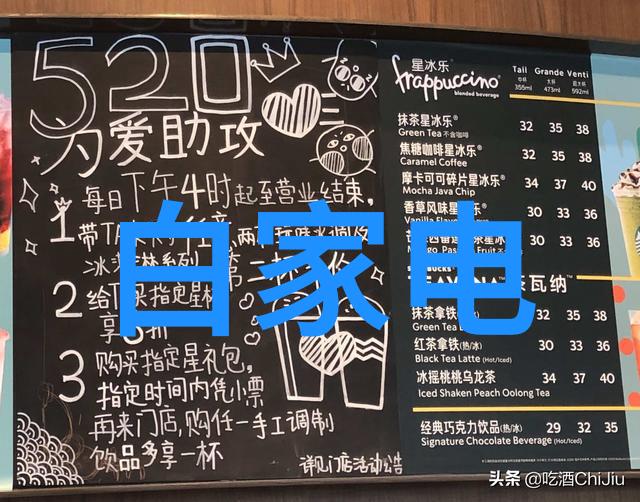 520
为爱助攻
每日下午4时起至营业结束,
1
冰淇淋系列
第二杯
2 给
买指定星杯
享
折
3 购买指定星礼包,
指定时间内凭小票
再来门店,购任一手工调制
饮品多享一杯
详见门店活动公告
白家电
星冰乐®
frappuccino®
blended beverage
Tall Grande Venti
中杯 大杯 超大杯
355ml 473ml 592ml
抹茶星冰乐® 32 35 38
Green Tea 不含咖啡
焦糖咖啡星冰乐® 32 35 38
Caramel Coffee
摩卡可可碎片星冰乐® 34 37 40
Mocha Java Chip
香草风味星冰乐® 30 33 36
Vanilla
30 33 36
茶瓦纳™
抹茶拿铁(热/冰) 32 35 38
Green Tea
红茶拿铁(热/冰) 30 33 36
Black Tea Latte (Hot/Iced)
冰摇桃桃乌龙茶 34 37 40
Iced Shaken Peach Oolong Tea
经典巧克力饮品(热/冰) 29 32 35
Signature Chocolate Beverage (Hot/Iced)
头条 @吃酒ChiJiu